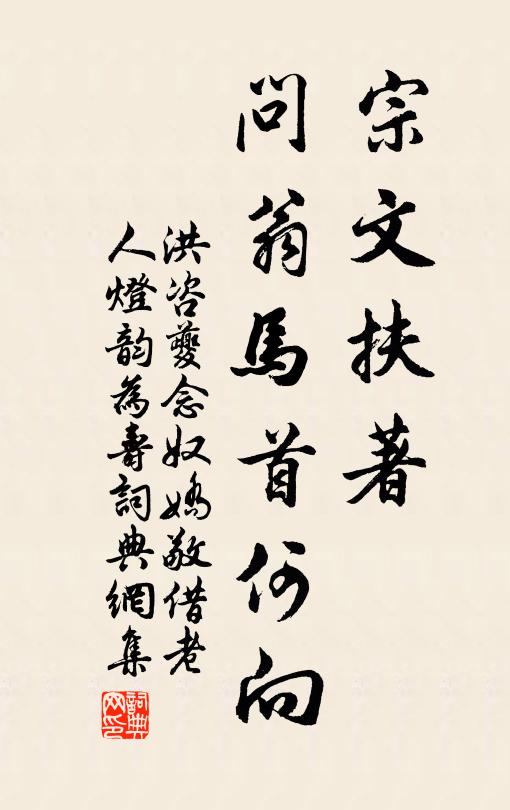 宗文扶著
問翁馬首何向
洪咨夔念奴嬌敬借老
人燈韵為壽詞典網集
詞典網印